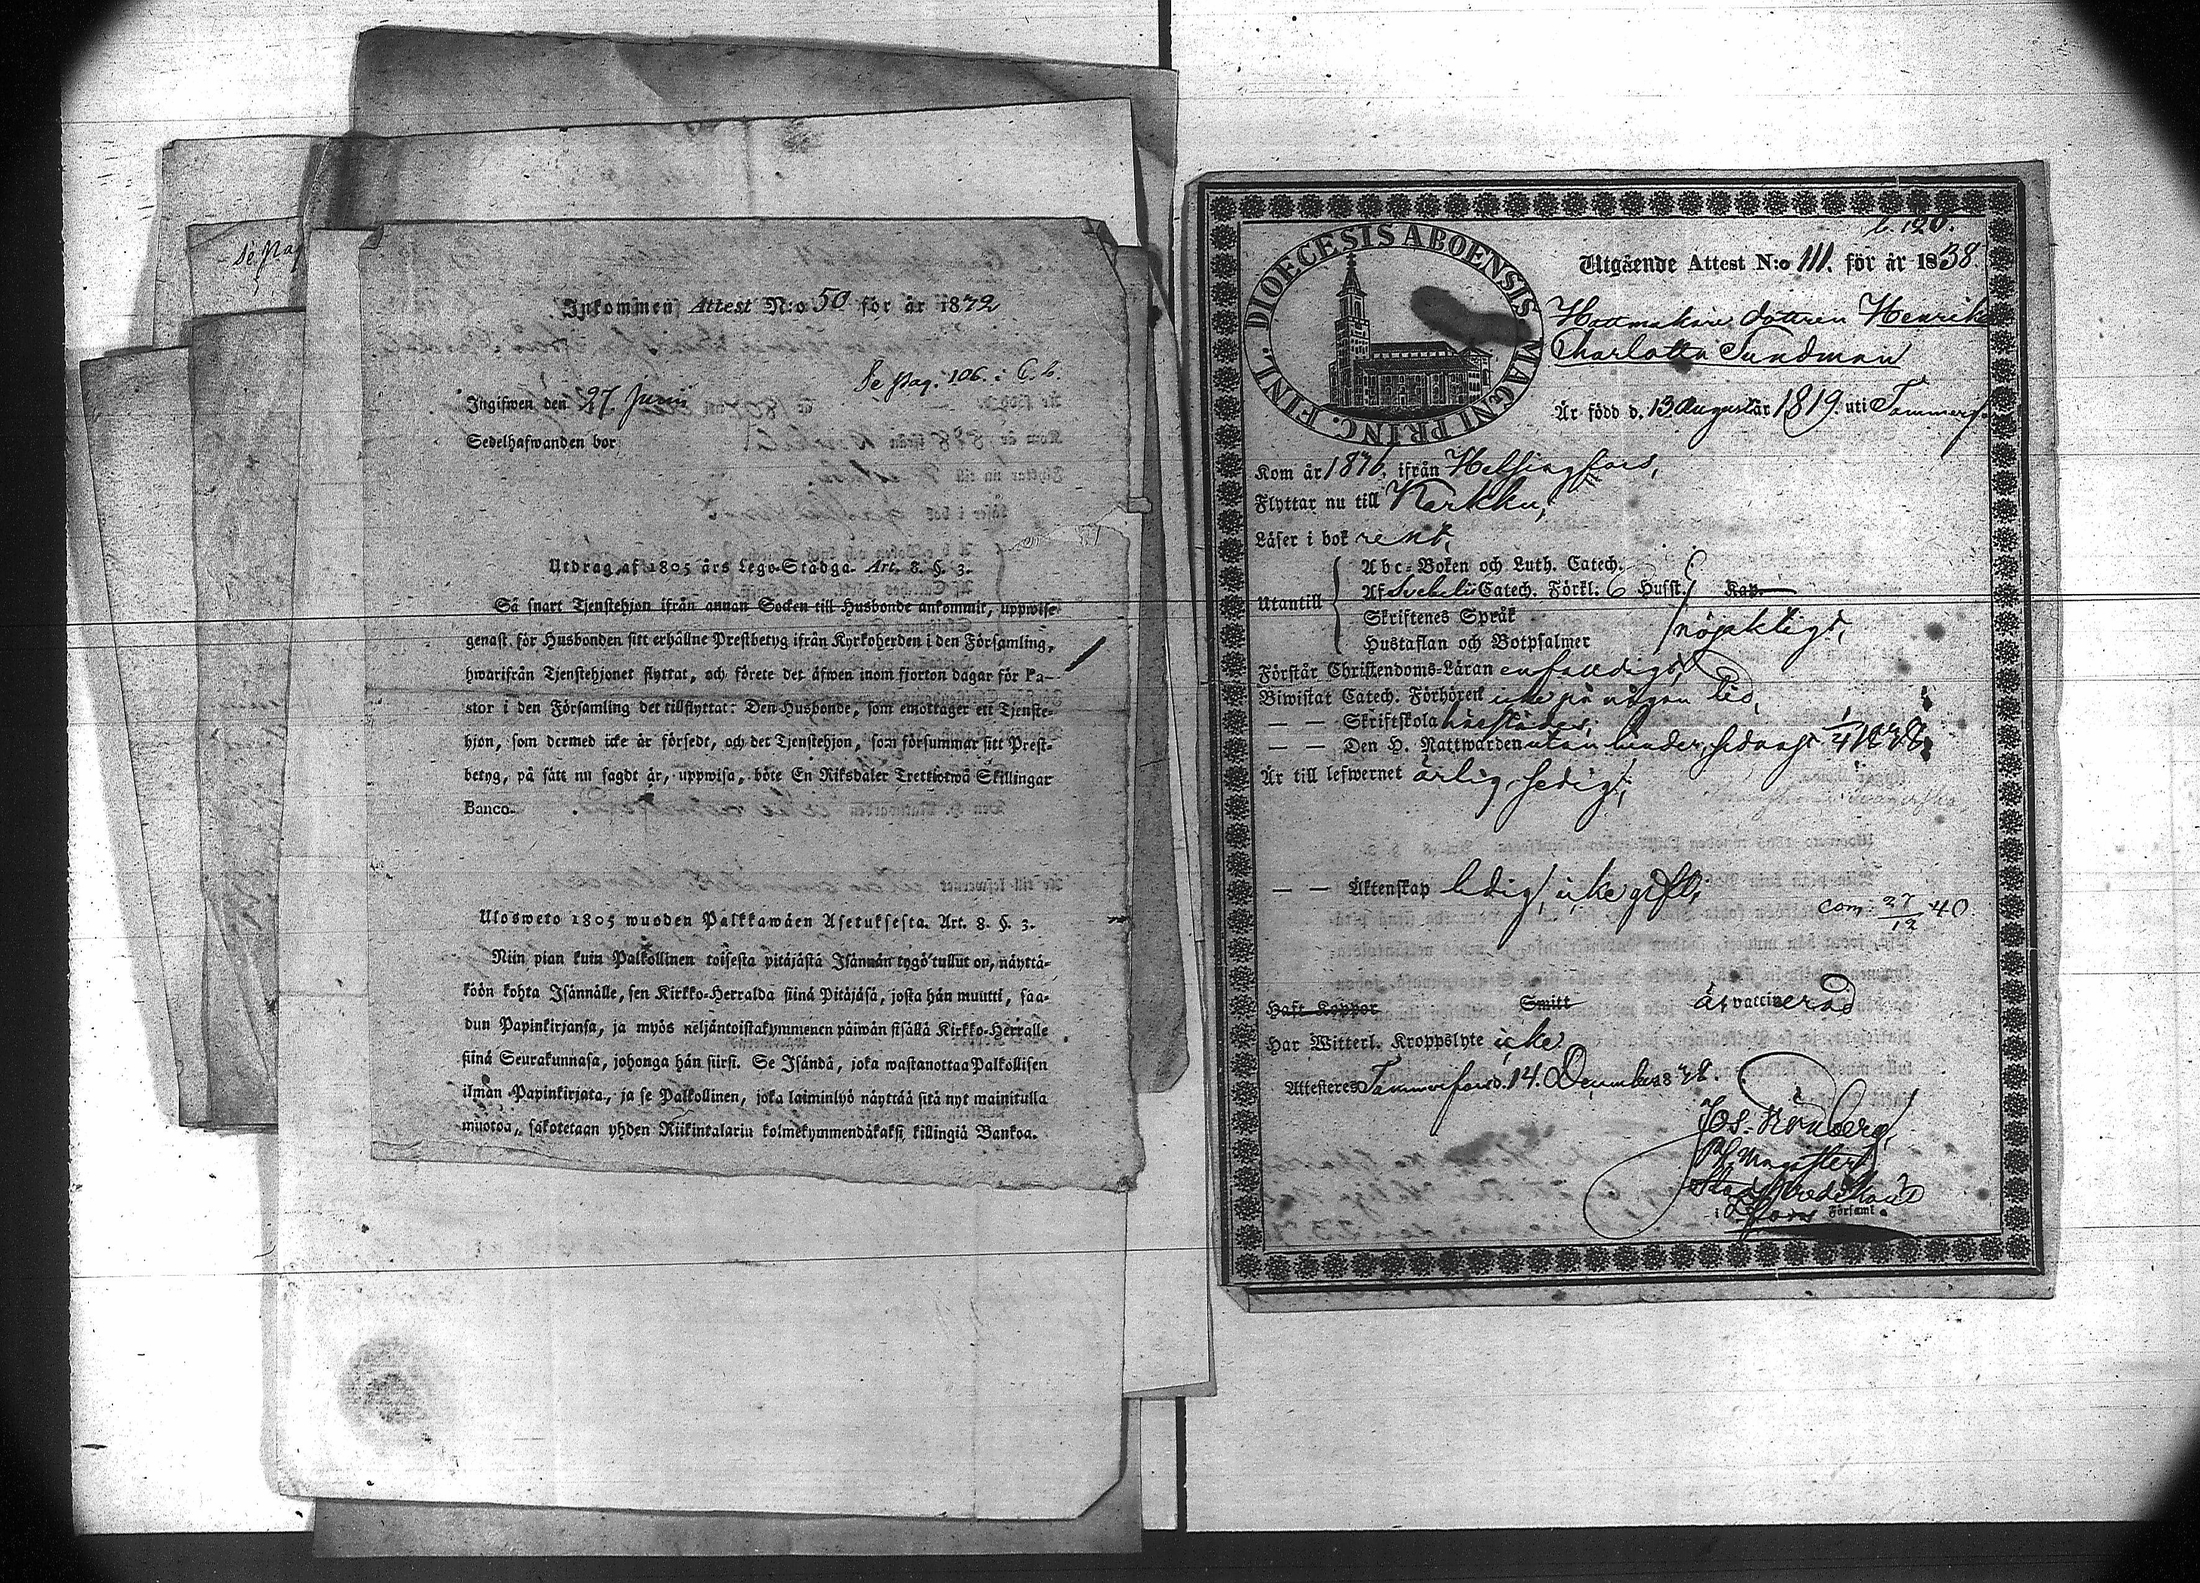 Se Pag
Inkommen Attest N:o 50 för år 1842
Se Pag. 106. i C. b.
Ingifwen den 27 Junii
Sedelhafwanden bor
Utdrag af 1805 års Lego-Stadga. Art. 8. §. 3.
Så snart Tjenstehjon ifrån annan Socken till Husbonde ankommit, uppwise
genast för Husbonden sitt erhållne Prestbetyg ifrån Kyrkoherden i den Församling,
hwarifrån Tjenstehjonet flyttat, och förete det äfwen inom fjorton dagar för Pa-
stor i den Församling det tillflyttat: Den Husbonde, som emottager ett Tjenste-
hjon, som dermed icke är försedt, och det Tjenstehjon, som försummar sitt Prest-
betyg, på sätt nu sagdt är, uppwisa, böte En Riksdaler Trettiotwå Skillingar
Banco.
Ulosweto 1805 wuoden Palkkawäen Asetuksesta. Art. 8. §. 3.
Niin pian kuin Palkollinen toisesta pitäjästä Isännän tygö tullut on, näyttä-
köön kohta Isännälle, sen Kirkko-Herralda siinä Pitäjäsä, josta hän muutti, saa-
dun Papinkirjansa, ja myös neljäntoistakymmenen päiwän sisällä Kirkko-Herralle
siinä Seurakunnasa, johonga hän siirsi. Se Isändä, joka wastanottaa Palkollisen
ilman Papinkirjata, ja se Palkollinen, joka laiminlyö näyttää sitä nyt mainitulla
muotoa, sakotetaan yhden Riikintalarin kolmekymmendäkaksi killingiä Bankoa.
b. 120.
DIOECESIS ABOENSIS MAGNI PRINC. FINL.
Utgående Attest N:o 111. för år 1838.
Hattmakare dottren Henrika
Charlotta Sundman
Är född d. 13 August år 1819. uti Tammerfors
Kom år 1836. ifrån Helsingfors,
Flyttar nu till Karkku,
Läser i bok rent,
Abc-Boken och Luth. Catech.
Utantill Af Svebelii Catech. Förkl: 6 Hufst. Kap.
Skriftenes Språk nöjaktigt,
Hustaflan och Botpsalmer
Förstår Christendoms-Läran enfaldigt,
Biwistat Catech. Förhören icke på någon tid,
— — Skriftskola härstädes,
— — Den H. Nattwarden utan hinder, sednast 1/4 1838,
Är till lefwernet ärlig, sedig,
— — Äktenskap ledig, icke gift,
com 27/12 40.
Haft Koppor Smitt är vaccinerad
Har Witterl. Kroppslyte icke
Attesteres Tammerfors d. 14. December 1838.
Jos. Grönberg,
Ph. Magister
Stads Predikant
i T:fors Församl.